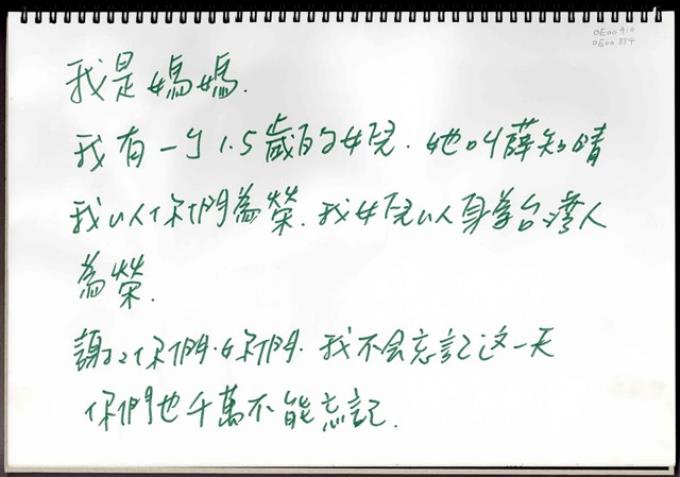 我是媽媽.
我有一个1.5歲的女兒. 她叫薛知晴
我以你們為榮. 我女兒以身為台灣人
為榮.
謝々你們.妳們. 我不会忘記这一天
你們也千萬不能忘記.